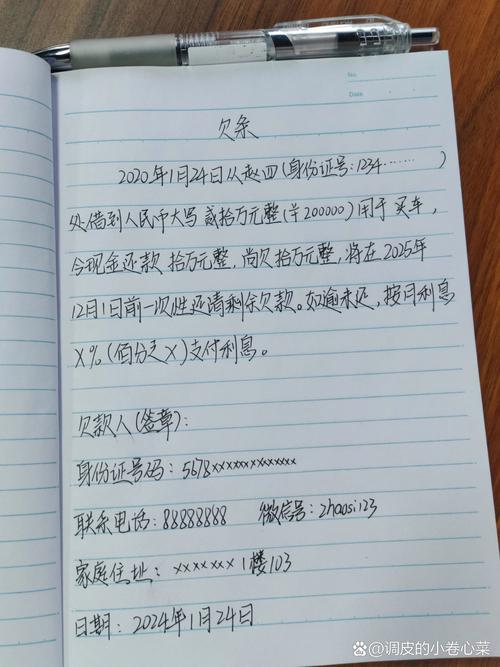 No.
Date
欠条
2020年1月24日从赵四(身份证号:1234……)
处借到人民币大写 贰拾万元整(¥200000)用于 买车,
今现金还款 拾万元整,尚欠拾万元整,将在2025年
12月1日前一次性还清剩余欠款。如逾未还,按月利息
X%(佰分之X)支付利息。
欠款人(签章):
身份证号码:5678xxxxxxxxxxxxx
联系电话:88888888 微信号:zhaosi123
家庭住址:xxxxxxx 1楼103
日期:2024年1月24日
@调皮的小卷心菜